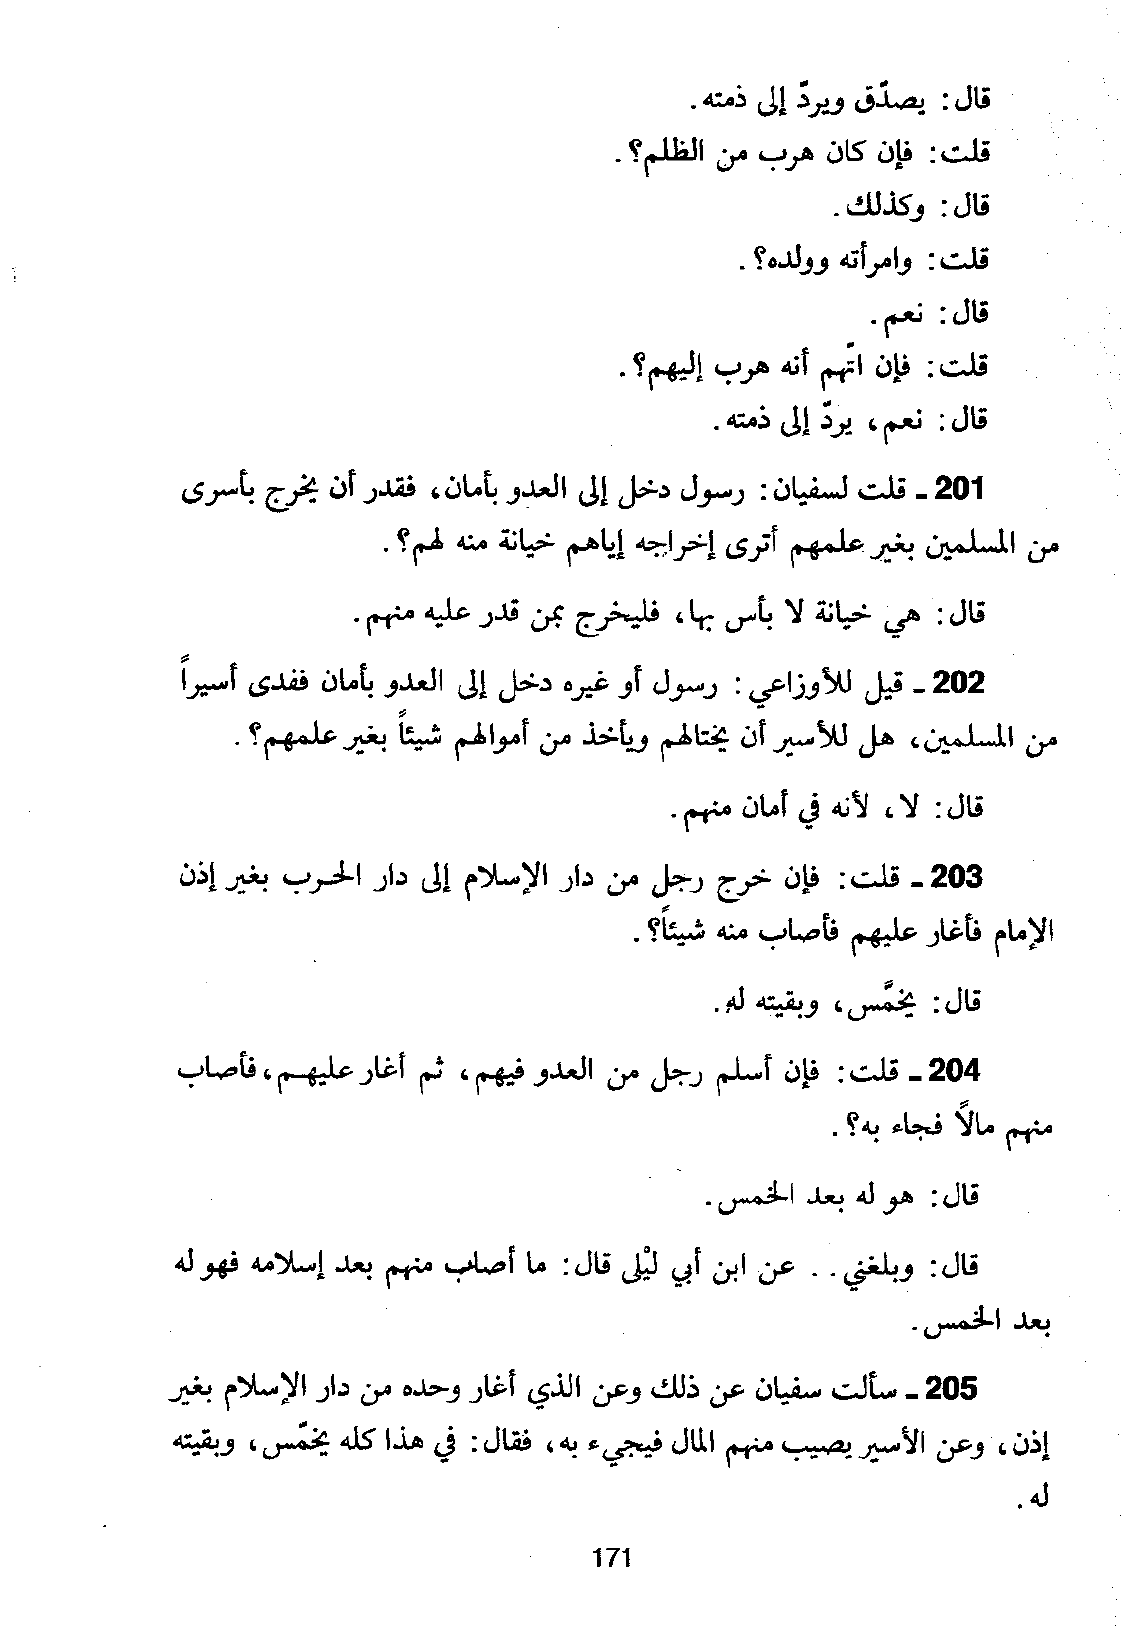 قال: يصدّق ويردّ إلى ذمته.
قلت: فإن كان هرب من الظلم؟.
قال: وكذلك.
قلت: وامرأته وولده؟.
قال: نعم.
قلت: فإن اتّهم أنه هرب إليهم؟.
قال: نعم، يردّ إلى ذمته.
201 ـ قلت لسفيان: رسول دخل إلى العدو بأمان، فقدر أن يخرج بأسرى
من المسلمين بغير علمهم أترى إخراجه إياهم خيانة منه لهم؟.
قال: هي خيانة لا بأس بها، فليخرج بمن قدر عليه منهم.
202 ـ قيل للأوزاعي: رسول أو غيره دخل إلى العدو بأمان ففدى أسيراً
من المسلمين، هل للأسير أن يختالهم ويأخذ من أموالهم شيئاً بغير علمهم؟.
قال: لا، لأنه في أمان منهم.
203 ـ قلت: فإن خرج رجل من دار الإسلام إلى دار الحرب بغير إذن
الإمام فأغار عليهم فأصاب منه شيئاً؟.
قال: يخمّس، وبقيته له.
204 ـ قلت: فإن أسلم رجل من العدو فيهم، ثم أغار عليهم، فأصاب
منهم مالاً فجاء به؟.
قال: هو له بعد الخمس.
قال: وبلغني. . عن ابن أبي ليْلى قال: ما أصاب منهم بعد إسلامه فهو له
بعد الخمس.
205 ـ سألت سفيان عن ذلك وعن الذي أغار وحده من دار الإسلام بغير
إذن، وعن الأسير يصيب منهم المال فيجيء به، فقال: في هذا كله يخمّس، وبقيته
له.
171